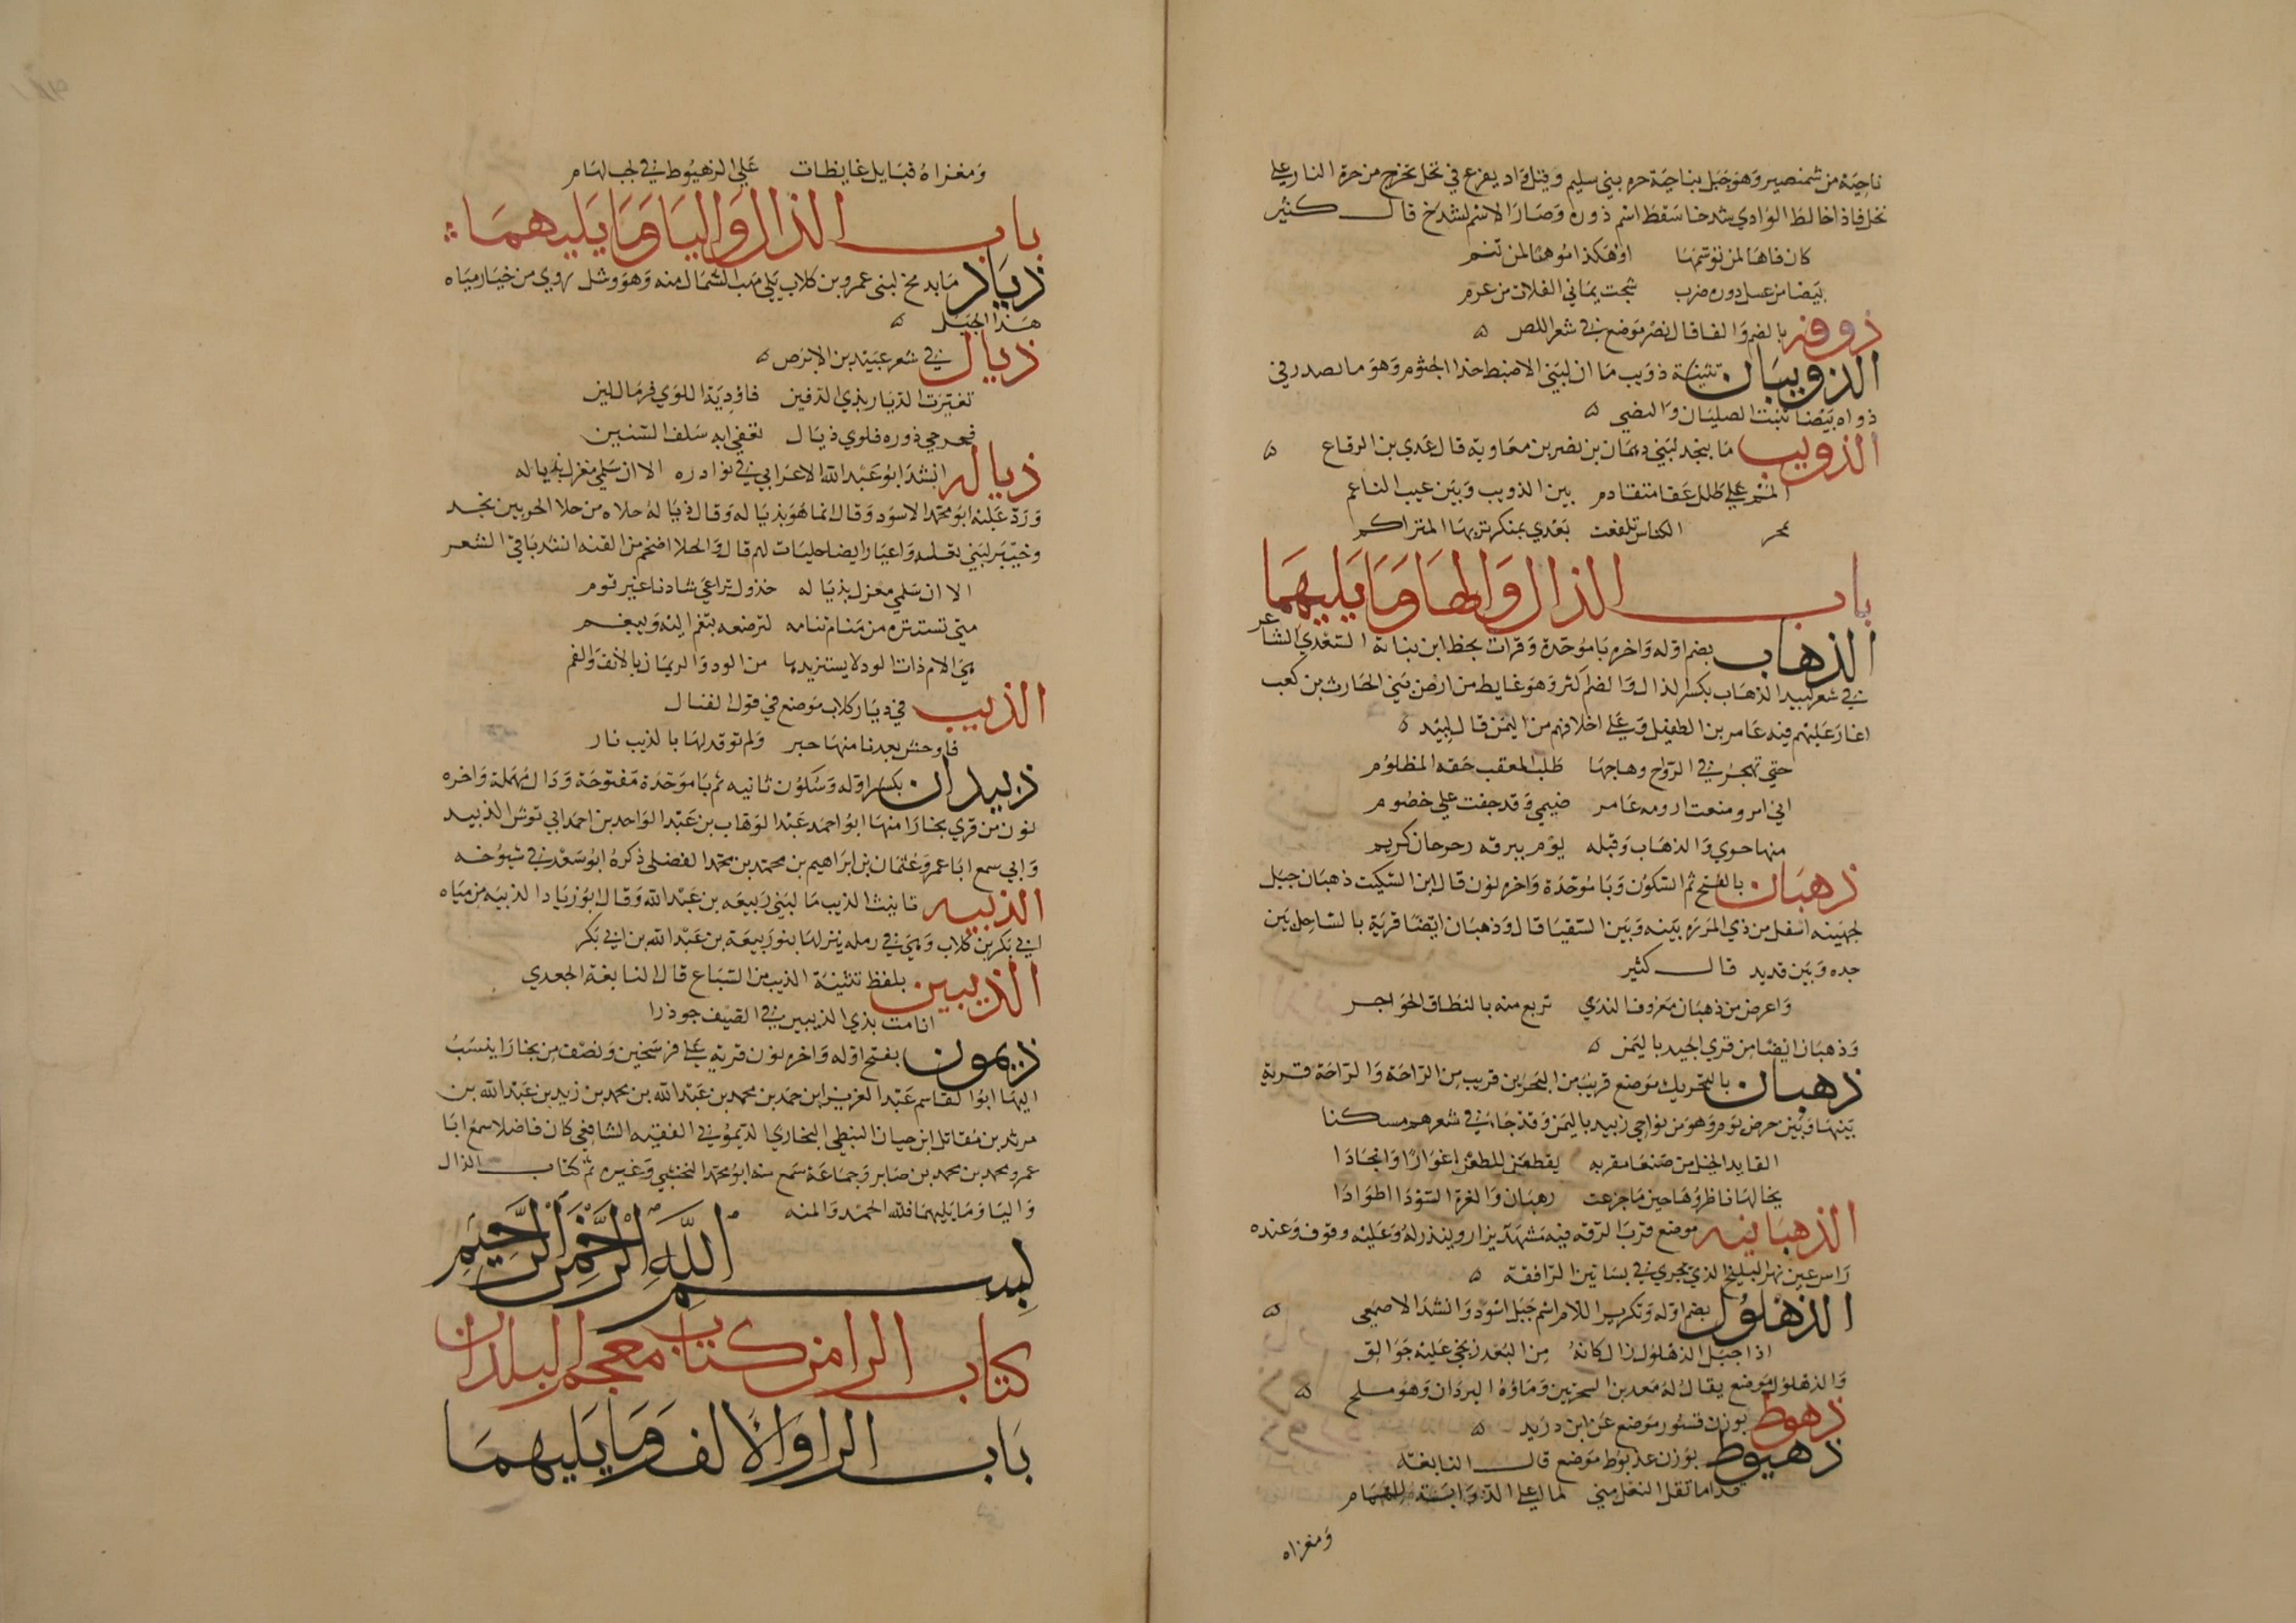 ناحية من شمنصير وهو جبل بناحية حرة بني سليم وقيل واد يفرع في نخل تخرج من حرة النار على
نخل فاذا خالط الوادي شدخا سقط اسم ذوره وصار الاسم لشدخ قال كثير
كان فاها لمن توسمها او هكذا موهنا لمن تنم
بيضا من عسل دوره ضرب شجت بماني الفلات من عرم
ذوفه بالضم والفا قال نصر موضع في شعر اللص ه
الذويبان تثنية ذويب ما ان لبني الاضبط حذا الجثوم وهو ما لصدر في
ذواه بيضا تنبت الصليان والنضي ه
الذويب ما بنجد لبني دهمان بن نصر بن معاوية قال عدي بن الرقاع ه
المم على طلل عفا متقادم بين الذويب وبين عيب الناعم
بمحر الكناس تلفعت بعدي بمنكر تربها المتراكم
باب الذال والها وما يليهما
الذهاب بضم اوله واخره با موحدة وقرات بخط ابن نباتة السعدي الشاعر
في شعر لبيد الذهاب بكسر الذال والضم اكثر وهو غايط من ارض بني الحارث بن كعب
اغار عليهم فيه عامر بن الطفيل وعلى اخلافهم من اليمن قال لبيد ه
حتي تهجر في الرواح وهاجها طلب المعقب حقه المظلوم
اني امرو منعت ارومه عامر ضيمي وقد جفت علي خصوم
منها حوي والذهاب وقبله يوم ببرقه رحرحان كريم
ذهبان بالفتح ثم السكون وبا موحدة واخره نون قال ابن السكيت ذهبان جبل
لجهينه اسفل من ذي المره بينه وبين السقيا قال وذهبان ايضا قرية بالساحل بين
جده وبين قديد قال كثير
واعرض من ذهبان معروف الذري تربع منه بالنطاق الحواجر
وذهبان ايضا من قري الجيد باليمن ه
ذهبان بالتحريك موضع قريب من البحرين قريب من الراحة والراحة قرية
بينها وبين حرض يوم وهو من نواحي زبيد باليمن وقد جاء في شعرهم مسكنا
القايد الخيل من صنعا مقربه يقطعن للطعن اغوارا وانجادا
يخالها ناظروها حين ما جزعت رهبان والغرة السودا اطوادا
الذهبانيه موضع قرب الرقه فيه مشهد يزار وينذر له وعليه وقوف وعنده
راس عين نهر البليخ الذي يجري في بساتين الرافقة ه
الذهلول بضم اوله وتكرير اللام اسم جبل اسود وانشد الاصمعي ه
اذا جبل الذهلول زال كانه من البعد زنجي عليه جوالق
والذهلول موضع يقال له معدن الشجرتين وماؤه البردان وهو ملح ه
ذهوط بوزن قسور موضع عن ابن دريد ه
ذهيوط بوزن عذيوط موضع قال النابغة
فداما تقل النعل مني لما اعلى الذوابة للهمام
ومغزاه
ومغزاه قبايل غايظات علي الذهيوط في لجب لهام
باب الذال واليا وما يليهما
ذياد ما بدمخ لبني عمرو بن كلاب يلي مهب الشمال منه وهو وشل يروي من خيار مياه
هذا الجبل ه
ذيال في شعر عبيد بن الابرص ه
تغيرت الديار بذي الدفين فاودية اللوي فرمال لين
فحرجي ذوره فلوي ذيال تعفي ايه سلف السنين
ذياله انشد ابو عبد الله الاعرابي في نوادره الا ان سلمي مغزل بذياله
ورد عليه ابو محمد الاسود وقال انما هو بذياله وقال ذياله حلاه من حلا الحربين نجد
وخيبر لبني ثعلبه واعيار ايضا حليات لهم قال والحلا اضخم من القنه انشد با في الشعر
الا ان سلمي مغزل بذياله خذول تراعي شادنا غير توم
متي تستثره من منام تنامه لترضعه يتغم اليه ويبغم
هي الام ذات الود لا يستزيدها من الود والريمان بالانف والفم
الذيب في ديار كلاب موضع في قول القتال
فاوحش بعدنا منها حبر ولم توقد لها بالذيب نار
ذيبدان بكسر اوله وسكون ثانيه ثم با موحدة مفتوحة ودال مهملة واخره
نون من قري بخارا منها ابو احمد عبد الوهاب بن عبد الواحد بن احمد ابي توش الذيبد
وابي سمع ابا عمرو عثمان بن ابراهيم بن محمد بن محمد الفضلي ذكره ابو سعد في شيوخه
الذيبيه تانيث الذيب ما لبني ربيعه بن عبد الله وقال ابو زياد الذيبيه من مياه
ابي بكر بن كلاب وهي في رمله ينزلها بنو ربيعة بن عبد الله بن ابي بكر
الذيبين بلفظ تثنية الذيب من السباع قال النابغة الجعدي
انامت بذي الذيبين في الصيف جوذرا
ذيمون بفتح اوله واخره نون قرية على فرسخين ونصف من بخارا ينسب
اليها ابو القاسم عبد العزيز ابن حمد بن محمد بن عبد الله بن محمد بن زيد بن عبد الله بن
مرثد بن مقاتل ابن حيان النبطي البخاري الديموني الفقيه الشافعي كان فاضلا سمع ابا
عمرو محمد بن محمد بن صابر وجماعة سمع منه ابو محمد النخشبي وغيره تم كتاب الذال
واليا وما يليهما فلله الحمد والمنه
بسم الله الرحمن الرحيم
كتاب الرا من كتاب معجم البلدان
باب الرا والالف وما يليهما